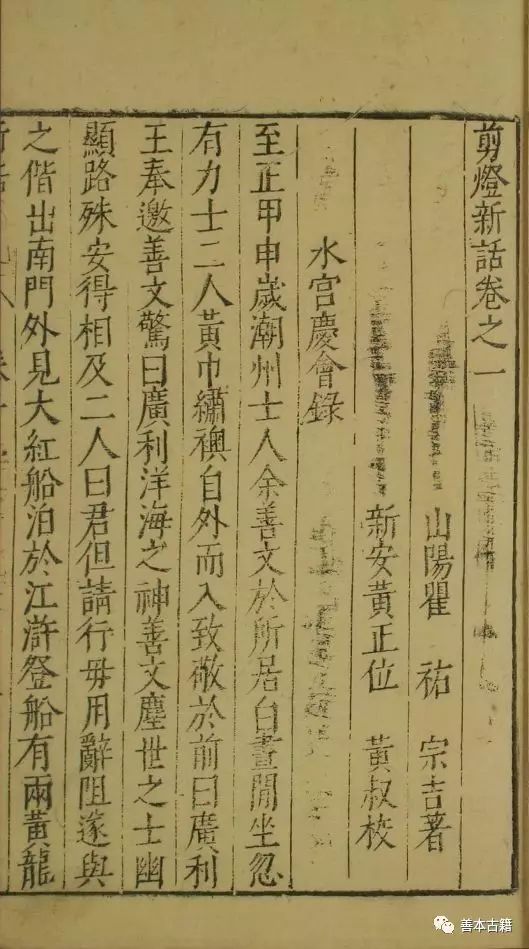 剪燈新話卷之一
山陽瞿　祐　宗吉著
新安黃正位　黃叔校
水宮慶會錄
至正甲申歲潮州士人余善文於所居白晝閒坐忽
有力士二人黃巾繡襖自外而入致敬於前曰廣利
王奉邀善文驚曰廣利洋海之神善文塵世之士幽
顯路殊安得相及二人曰君但請行毋用辭阻遂與
之偕出南門外見大紅船泊於江滸登船有兩黃龍
善本古籍